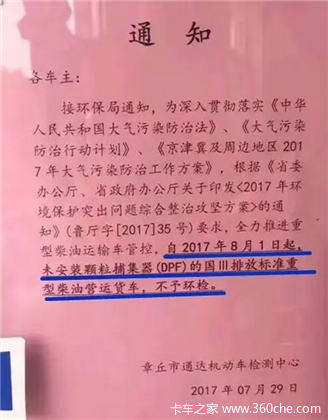 通知
各车主：
接环保局通知，为深入贯彻落实《中华
人民共和国大气污染防治法》、《大气污染
防治行动计划》、《京津冀及周边地区201
7年大气污染防治工作方案》，根据《省委
办公厅、省政府办公厅关于印发<2017年环
境保护突出问题综合整治攻坚方案>的通
知》(鲁厅字[2017]35号)要求，全力推进重
型柴油运输车管控，自2017年8月1日起，
未安装颗粒捕集器(DPF)的国Ⅲ排放标准重
型柴油营运货车，不予环检。
章丘市通达机动车检测中心
2017年07月29日
卡车之家 www.360che.com